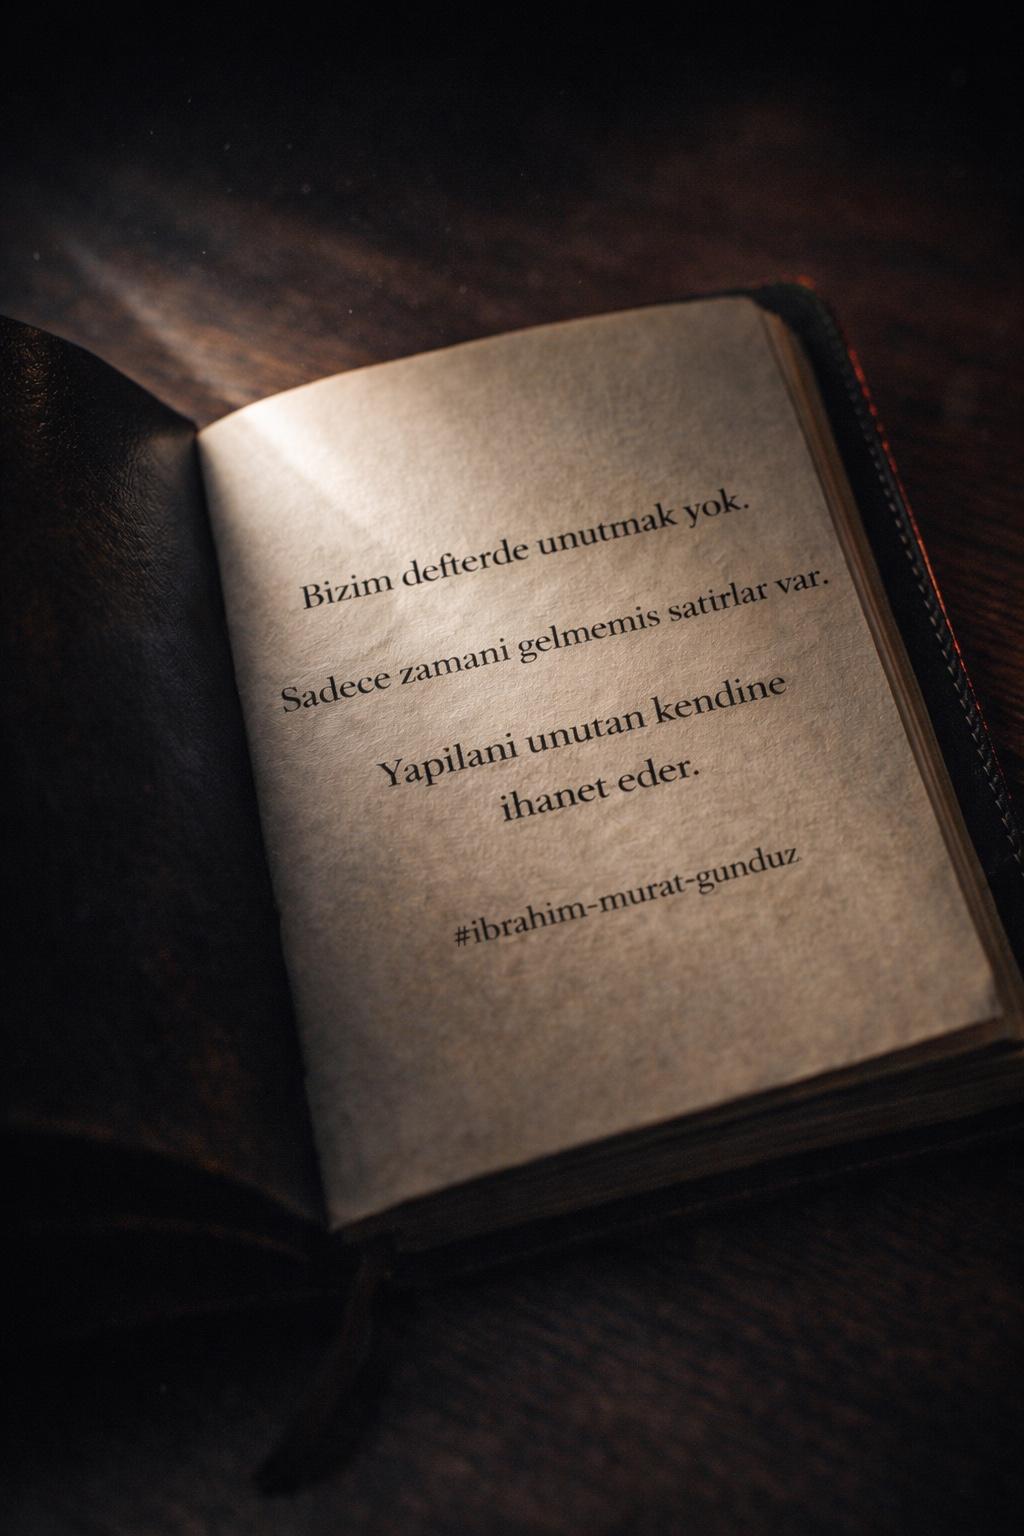 Bizim defterde unutmak yok.
Sadece zamani gelmemis satirlar var.
Yapilani unutan kendine
ihanet eder.
#ibrahim-murat-gunduz